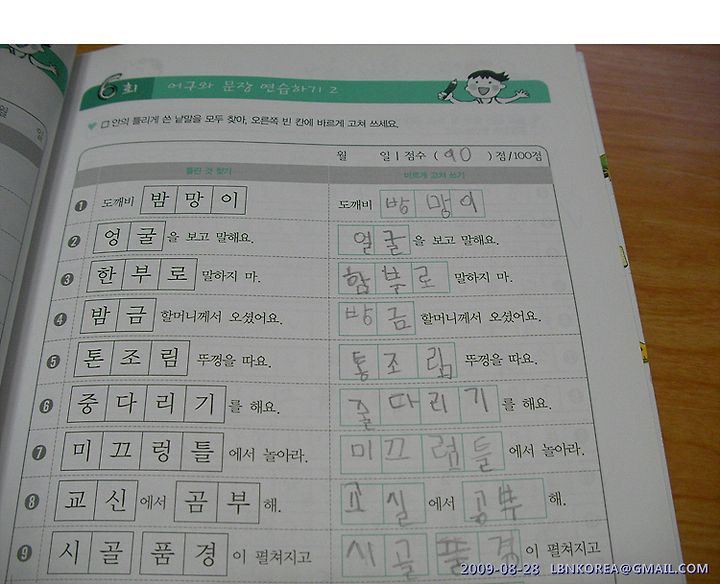 6회 어구와 문장 연습하기 2
안의 틀리게 쓴 낱말을 모두 찾아, 오른쪽 빈 칸에 바르게 고쳐 쓰세요.
월 일 | 점수 ( 90 ) 점/100점
틀린 것 찾기 바르게 고쳐 쓰기
1 도깨비 밤망이 도깨비 방망이
2 엉굴을 보고 말해요. 얼굴을 보고 말해요.
3 한부로 말하지 마. 함부로 말하지 마.
4 밤금 할머니께서 오셨어요. 방금 할머니께서 오셨어요.
5 톤조림 뚜껑을 따요. 통조림 뚜껑을 따요.
6 중다리기를 해요. 줄다리기를 해요.
7 미끄렁틀에서 놀아라. 미끄럼틀에서 놀아라.
8 교신에서 곰부해. 교실에서 공부해.
9 시골 품경이 펼쳐지고 시골 풍경이 펼쳐지고
2009-08-28 LBNKOREA@GMAIL.COM